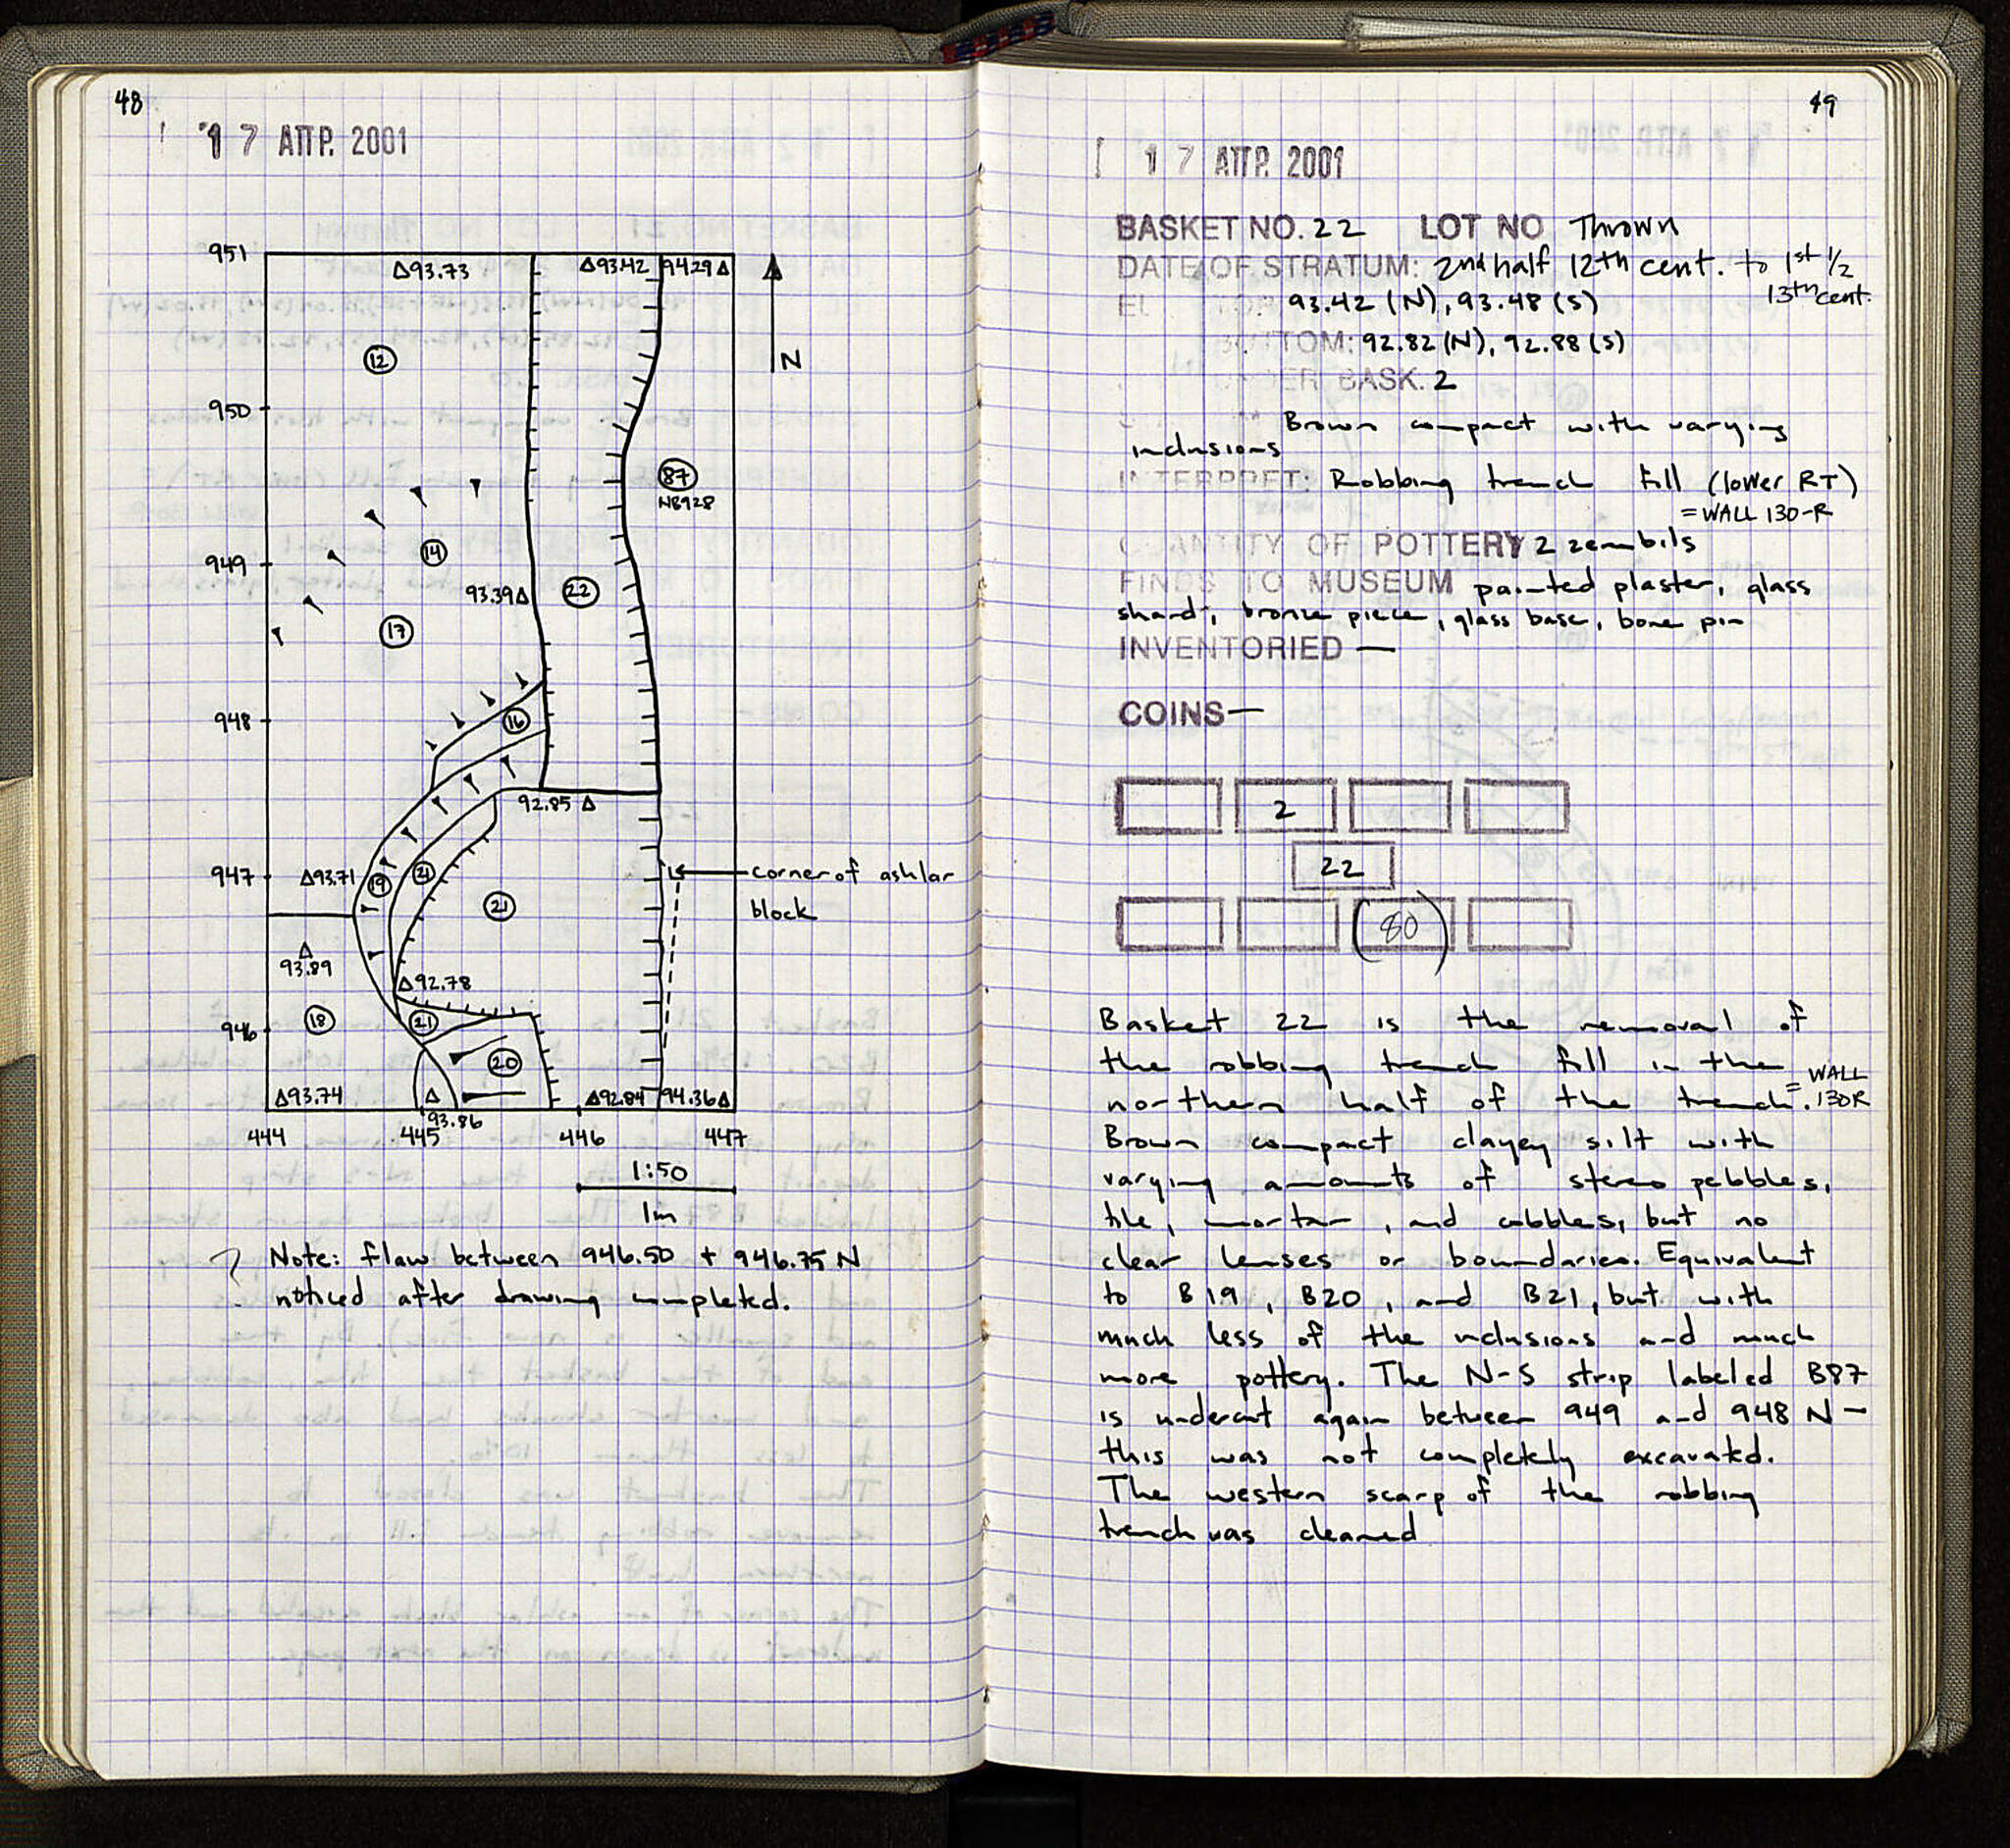 48
17 ΑΠΡ. 2001
951
Δ93.73
Δ93.42
94.29Δ
N
12
950
87
NB928
14
949
93.39Δ
22
17
948
16
92.85 Δ
947
Δ93.71
19
21
21
corner of ashlar
block
Δ
93.89
Δ92.78
946
18
21
20
Δ93.74
Δ
93.86
Δ92.84
94.36Δ
444
445
446
447
1:50
1m
? Note: flaw between 946.50 + 946.75 N
noticed after drawing completed.
49
17 ΑΠΡ. 2001
BASKET NO. 22 LOT NO Thrown
DATE OF STRATUM: 2nd half 12th cent. to 1st 1/2
13th cent.
EL TOP: 93.42 (N), 93.48 (S)
BOTTOM: 92.82 (N), 92.88 (S)
UNDER BASK. 2
Brown compact with varying
inclusions
INTERPRET: Robbing trench fill (lower RT)
= WALL 130-R
QUANTITY OF POTTERY 2 zembils
FINDS TO MUSEUM painted plaster, glass
shard, bronze piece, glass base, bone pin
INVENTORIED —
COINS —
2
22
(80)
Basket 22 is the removal of
the robbing trench fill in the
northern half of the trench. = WALL 130R
Brown compact clayey silt with
varying amounts of stereo pebbles,
tile, mortar, and cobbles, but no
clear lenses or boundaries. Equivalent
to B19, B20, and B21, but with
much less of the inclusions and much
more pottery. The N-S strip labeled B87
is undercut again between 949 and 948 N —
this was not completely excavated.
The western scarp of the robbing
trench was cleaned